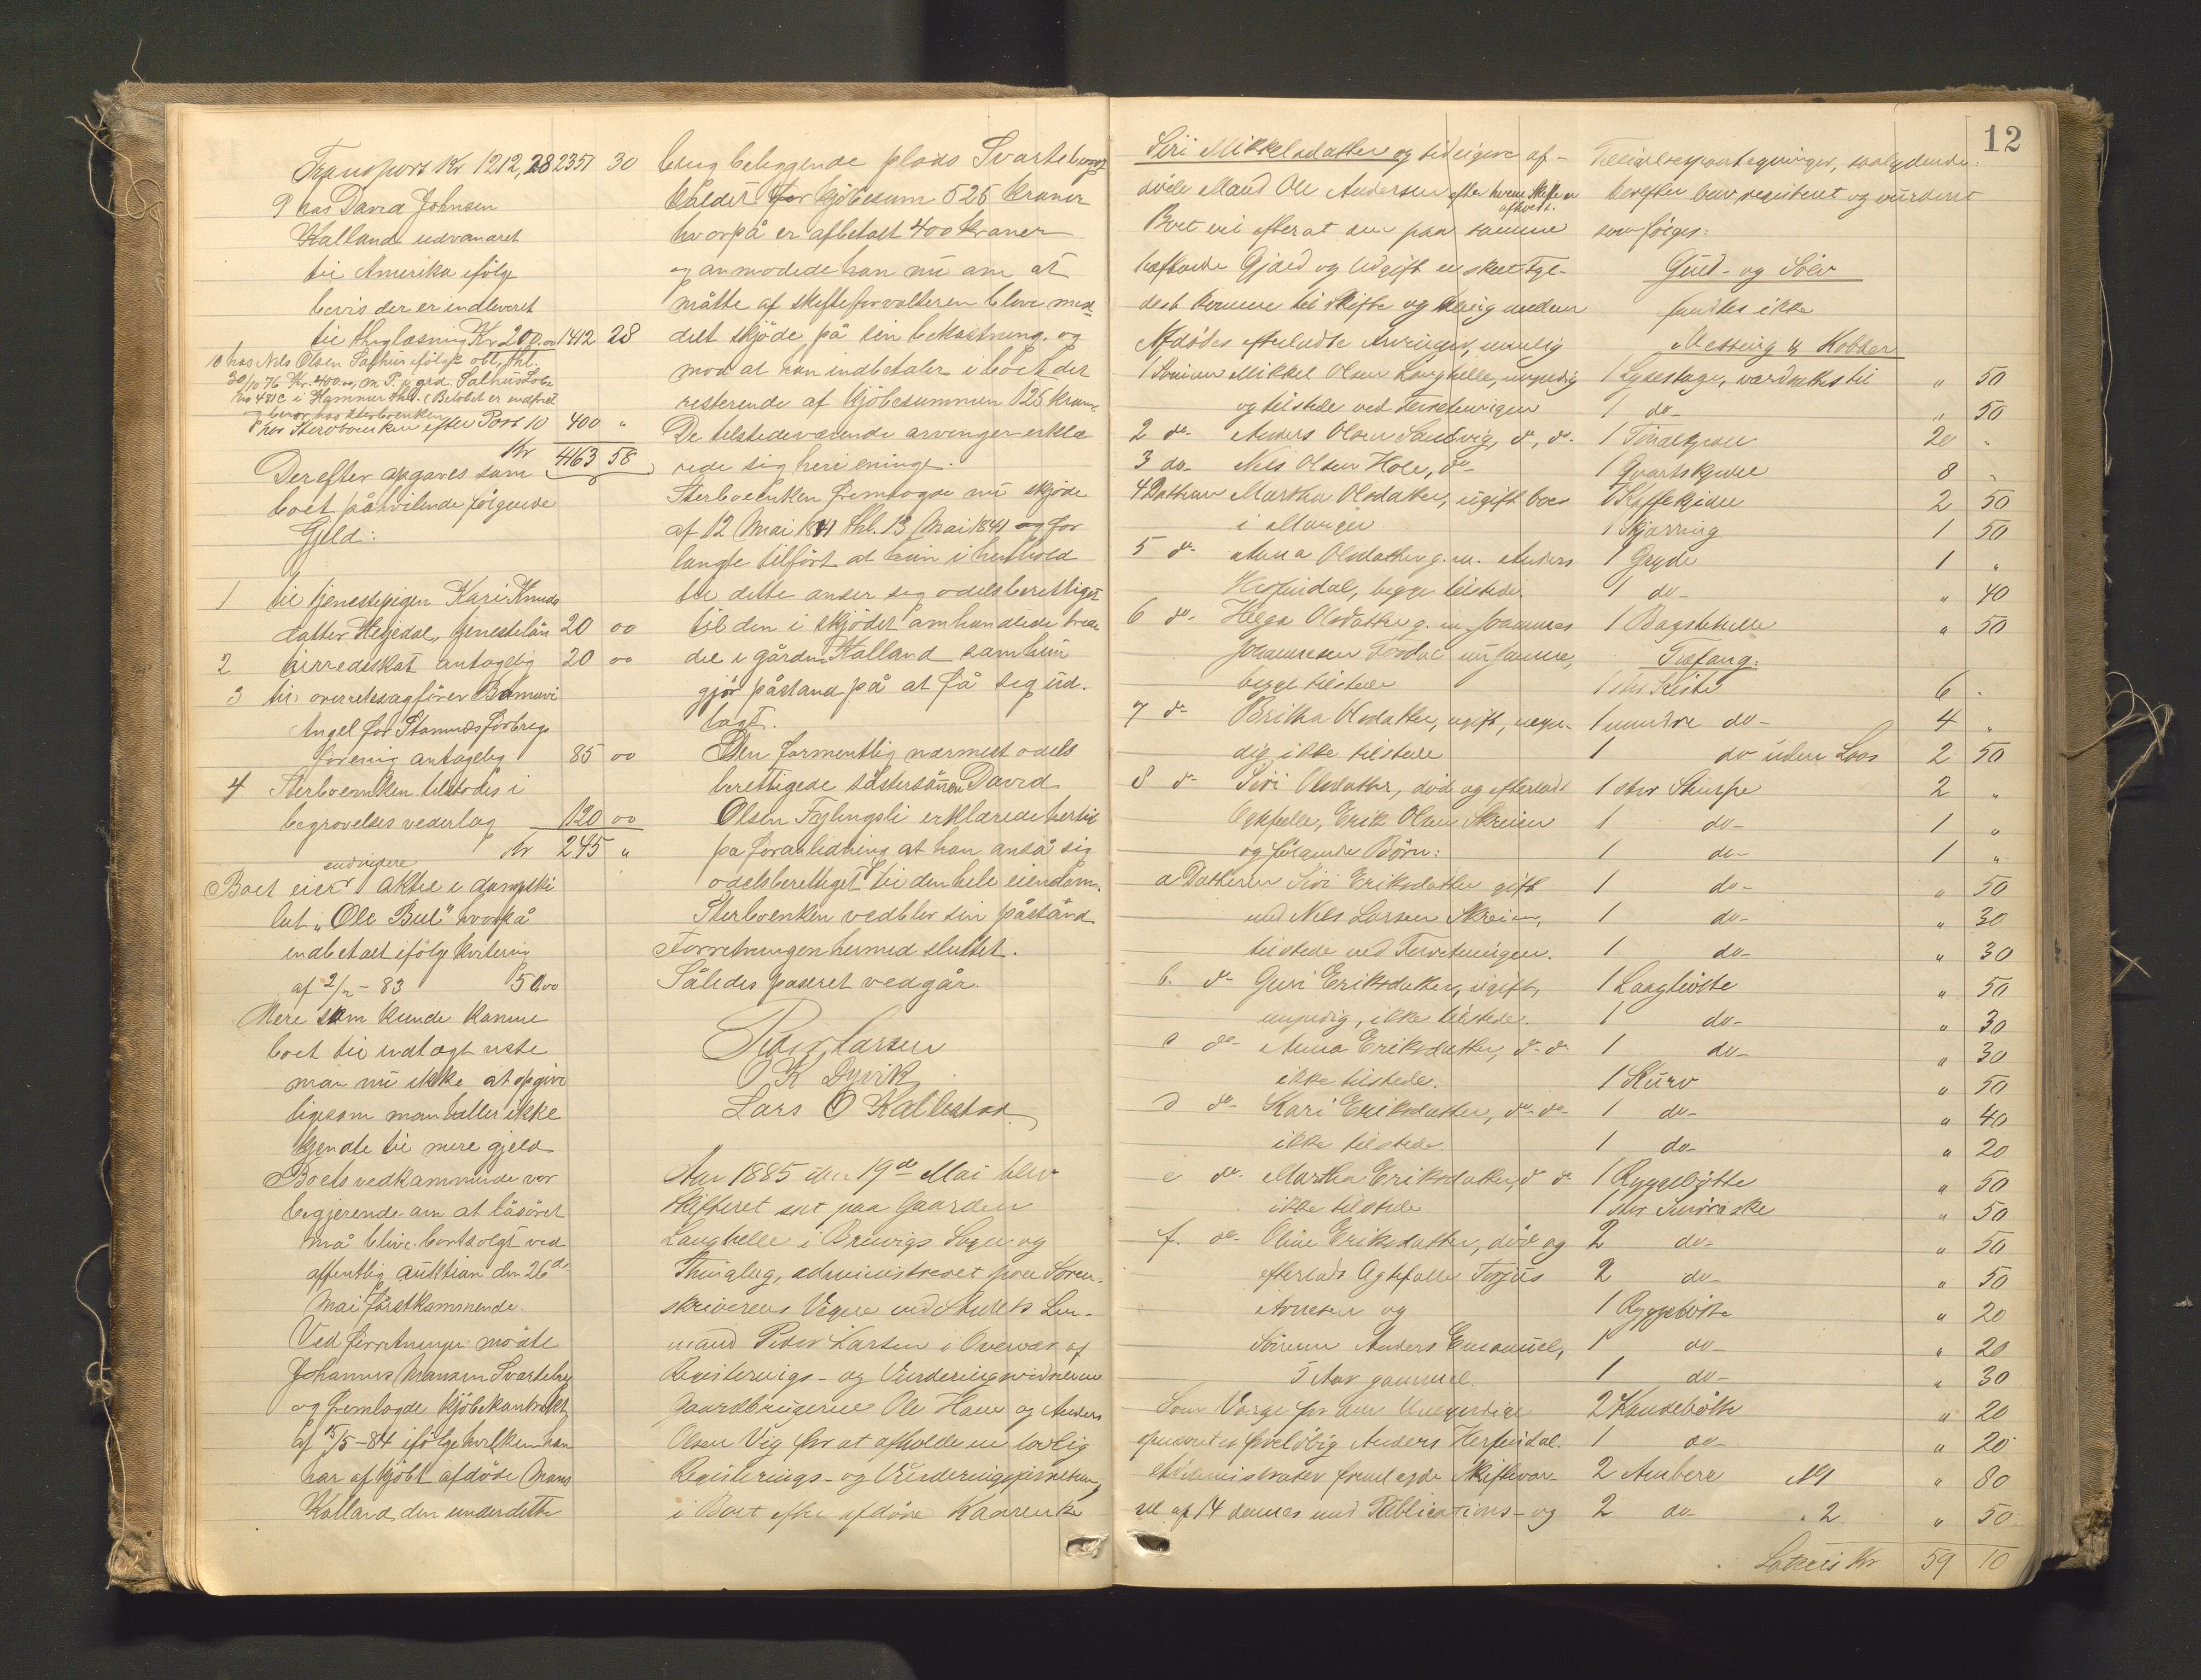 Transport Kr 1212,28 2351 30
9 hos David Johnsen
Kalland udvandret
til Amerika ifölge
bevis der er indleveret
til thglæsning Kr 200.00 1412 28
10 hos Nels Olsen Salhus ifölge obl. thl.
30/10 76 Kr. 400.00 m. P. i grd. Salhus Löbe
No 481c i Hammer thl. (Belöbet er indfriet
og beror hos Sterboenken
hos Sterboenken efter Post 10 400 "
Kr 4163 58
Derefter opgaves som
boet påhvilende fölgende
Gjeld:
1 til tjenestepigen Kari Knuds
datter Hejedal, tjenestelön 20 00
2 herredsskat antagelig 20 00
3 til overretssagförer
Angel for Stamnæs forbrugs
forening antagelig 85 00
4 Sterboenken tilstodes i
begravelses vederlag 120 00
Kr 245 "
endvidere
Boet eier 1 aktie i dampski
bet „Ole Bul" hvorpå
indbetalt ifölge kvitering
af 2/2 - 83 50.00
Mere som kunde komme
boet til indtægt viste
man nu ikke at opgive
ligesom man heller ikke
kjendte til mere gjeld
Boets vedkommende var
begjerende om at läsöret
må blive bortsolgt ved
offentlig auktion den 26de
Mai förstkommende.
Ved forretningen mödte
Johannes Monsen Svarteberg
og fremlagde kjöbekontrakt
af 15/5 - 84 ifölge hvilken han
har afkjöbt afdöde Mons
Kalland den under dette
brug beliggende plads Svarteberget
kaldet for kjöbesum 525 kroner
hvorpå er afbetalt 400 kroner
og anmodede han nu om at
måtte af skifteforvalteren blive med
delt skjöde på sin bekostning og
mod at han indbetaler i boet det
resterende af kjöbesummen 125 kroner.
De tilstedeværende arvinger erklæ
rede sig heri eninge.
Sterboenken fremlagde nu skjöde
af 12 Mai 1841 thl. 13 Mai 1841 og for
langte tilfört at hun i henhold
til dette anser sig odelsberettiget
til den i skjödet omhandlede bree
del i gården Kalland som hun
gjör påstand på at få sig ud.
lagt.
Den formentlig nærmest odels
berettigede söstersönnen David
Olsen Fuglingsli erklærede hertil
på foranledning at han anså sig
odelsberettiget til den hele eiendom.
Sterboenken vedblev sin påstånd
Forretningen hermed sluttet.
Således passeret vedgår
Peder Larsen
O K Dyvik
Lars O Kallestad
Aar 1885 den 19de Mai blev
Skifteret sat paa Gaarden
Langhelle i Bruvigs Sogn og
Thinglag, administreret paa Soren-
skriverens Vegne ved Skudets Len-
mand Peder Larsen i Overvær af
Registerings- og Vurderingsvidnerne
Gaardbrugerne Ole Hane og Anders
Olsen Vig for at afholde en lovlig
Registerings- og Vurderingsforretning
i Boet efter afdöde Kaarenke
12
Siri Mikkelsdatter og tidligere af-
döde Mand Ole Andersen efter hvem Skifte er
afholdt.
Boet vil efterat den paa samme
hæftende Gjæld og Udgift er skeet Fyl-
dest komme til Skifte og Deling mellem
Afdödes efterladte Arvinger, nemlig
1 Sönnen Mikkel Olsen Langhelle, myndig
og tilstede ved Forretningen
2 do Anders Olsen Sandvig, do, do-
3 do- Nels Olsen Hole, do-
4 Datteren Martha Olsdatter, ugift boes
i Manger
5 do- Anna Olsdatter g. m. Anders
Herfindal, begge tilstede.
6 do- Helga Olsdatter g. m. Johannes
Johannesen
begge tilstede
7 do- Britha Olsdatter, ugift, myn-
dig, ikke tilstede
8 do- Siri Olsdatter, död og efterladt
Ægtefælle, Erik Olsen Skreien
og fölgende Börn:
a Datteren Siri Eriksdatter gift
med Nils Larsen Skreien,
tilstede ved Forretningen.
b. do- Guri Eriksdatter, ugift,
umyndig, ikke tilstede.
c do- Anna Eriksdatter, do- do
ikke tilstede.
d do- Kari Eriksdatter, do- do-
ikke tilstede.
e do- Martha Eriksdatter, do do
ikke tilstede
f. do- Oline Eriksdatter, död og
efterladt Ægtefælle Torjus
Arnesen og
Sönnen Anders Emanuel,
5 Aar gammel.
Som Værge for den Umyndige
opnævntes foreløbig Anders Herfindal.
Administrator fremlagde Skiftevar-
sel af 14 dennes med Publications- og
Tillægspaategninger, saalydende:
derefter blev registeret og vurderet
som fölger:
Guld- og Sölv
fandtes ikke
Messing & Kobber
1 Lysestage, værdsattes til " 50
1 do- " 50
1 20 "
1 Qvartskjedel 8 "
1 Kaffekjedel 2 50
1 Kjærning 1 50
1 Gryde 1 "
1 do- " 40
1 Bagstehelle " 50
Træfang:
1 stor Kiste 6 -
1 mindre do- 4 "
1 do uden Laas 2 50
1 stor Skurpe 2 "
1 do- 1 "
1 do- 1 "
1 do- " 50
1 do- " 30
1 do- " 30
1 Laagbötte " 50
1 do- " 30
1 do- " 30
1 Kurv " 50
1 do- " 40
1 do- " 20
1 Ryggebötte " 50
1 stor Smöraske " 50
2 do- " 50
2 do- " 50
1 Ryggebötte " 20
1 do- " 20
1 do- " 30
2 Kandebötte " 20
1 do- " 20
2 Ambere No 1 " 80
2 do- " 2 " 50
Lateris Kr 59 10